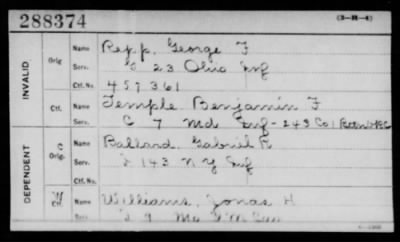 288374 (3-21-4)
INVALID
Orig. Name Repp, George F
Serv. G 23 Ohio Inf
Ctf. No. 457361
Ctf. Name Temple Benjamin F
Serv. C 7 Md Inf - 249 Co 1
DEPENDENT
C
Orig. Name Ballard, Gabriel R
Serv. 143 N.Y. Inf
Ctf. No.
W
Ctf. Name Williams, Jonas H
Serv. 9 Mo S M Cav